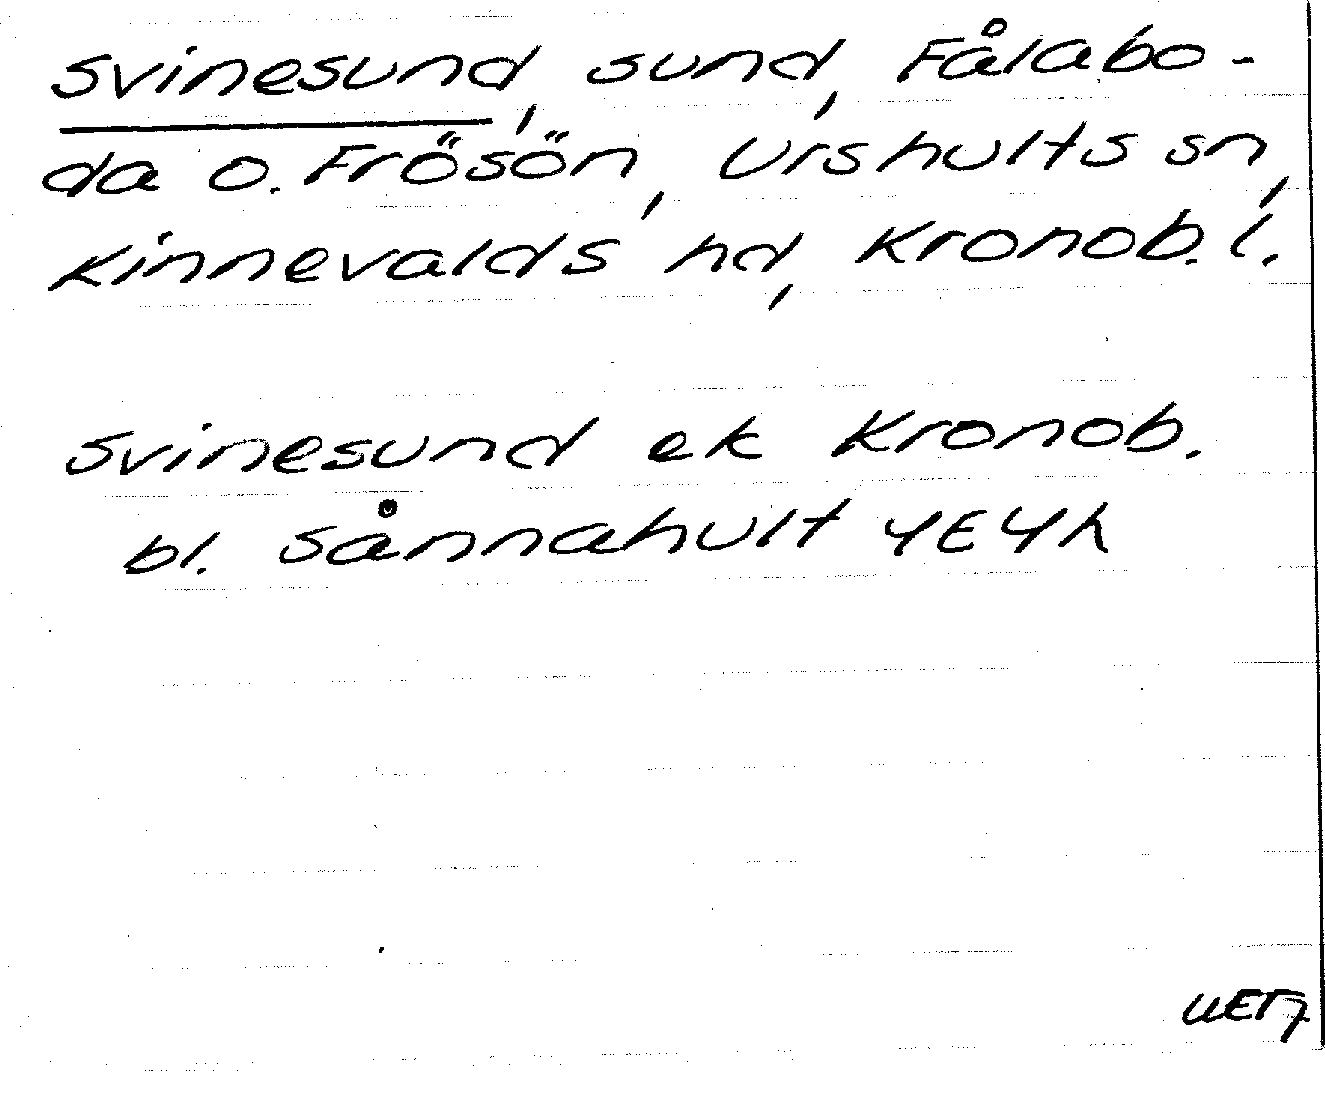 Svinesund, sund, Fålabo-
da o. Frösön, Urshults sn,
Kinnevalds hd, Kronob. l.
Svinesund ek Kronob.
bl. Sånnahult 4E4h